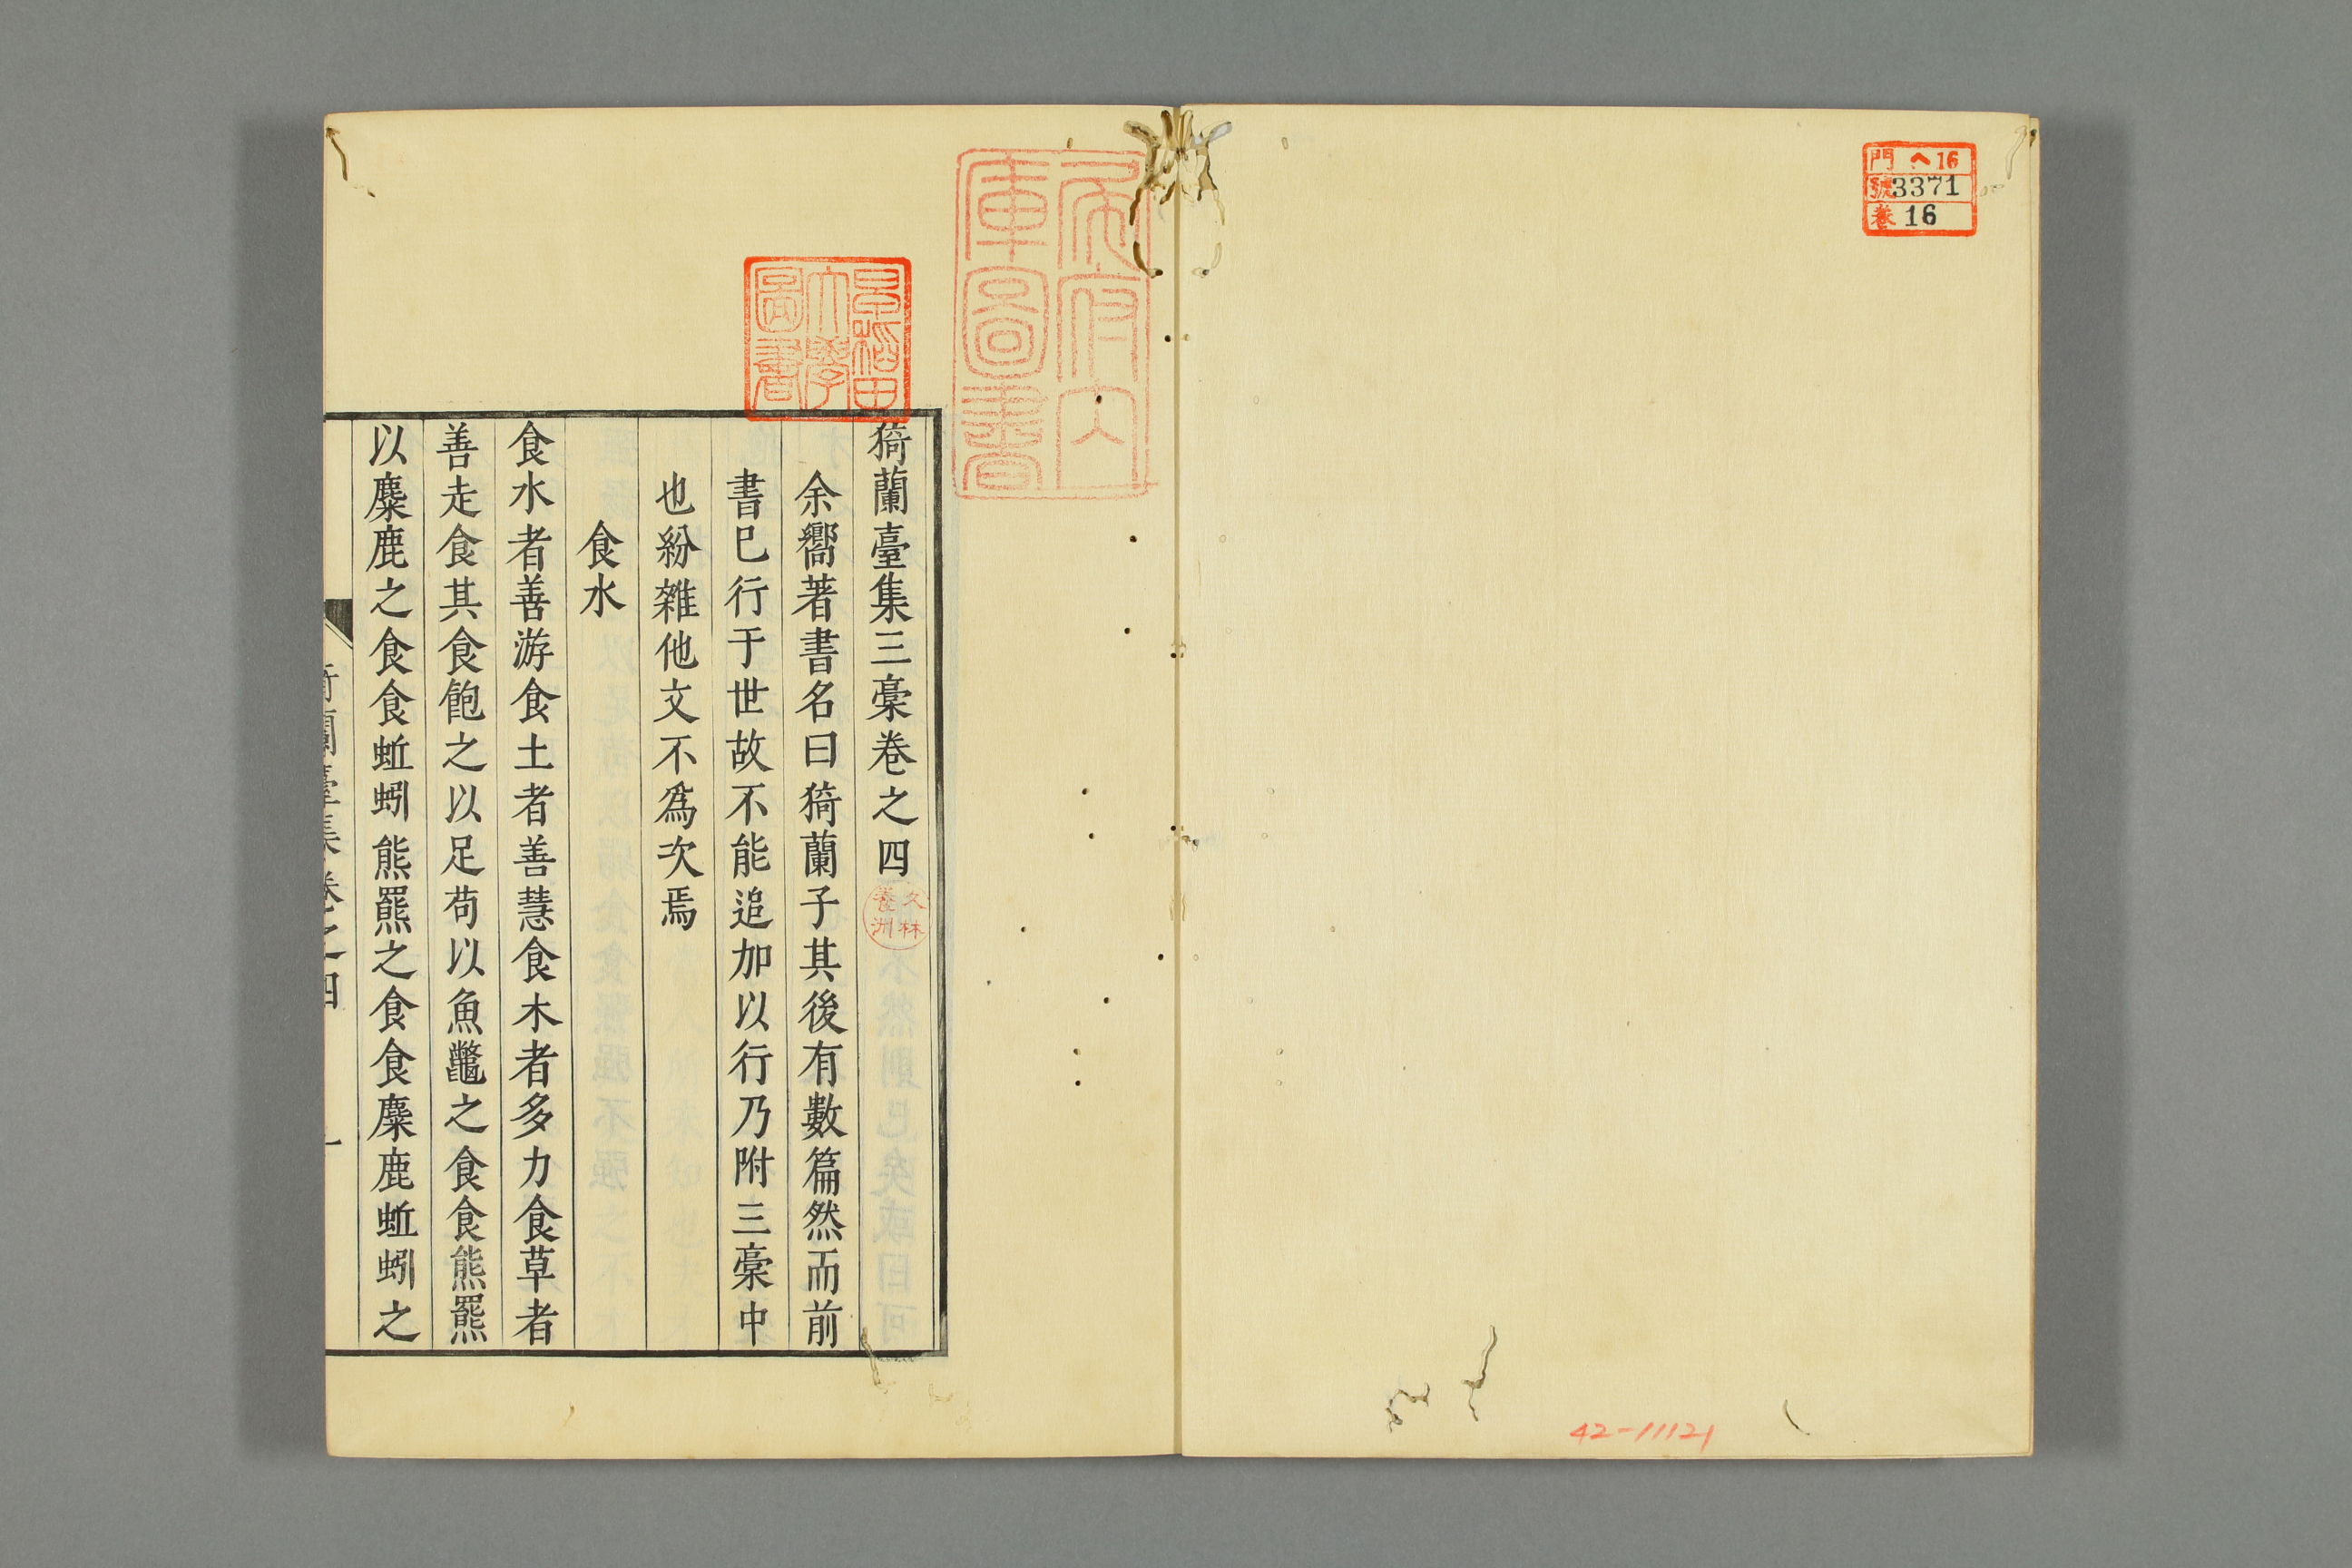 門 ヘ16
號 3371
卷 16
42-11121
早稻田大學圖書
猗蘭臺集三稾卷之四
久林
養洲
余嚮著書名曰猗蘭子其後有數篇然而前
書已行于世故不能追加以行乃附三稾中
也紛雜他文不爲次焉
食水
食水者善游食土者善慧食木者多力食草者
善走食其食飽之以足苟以魚鼈之食食熊羆
以麋鹿之食食蚯蚓熊羆之食食麋鹿蚯蚓之
猗蘭臺集 卷之四 一